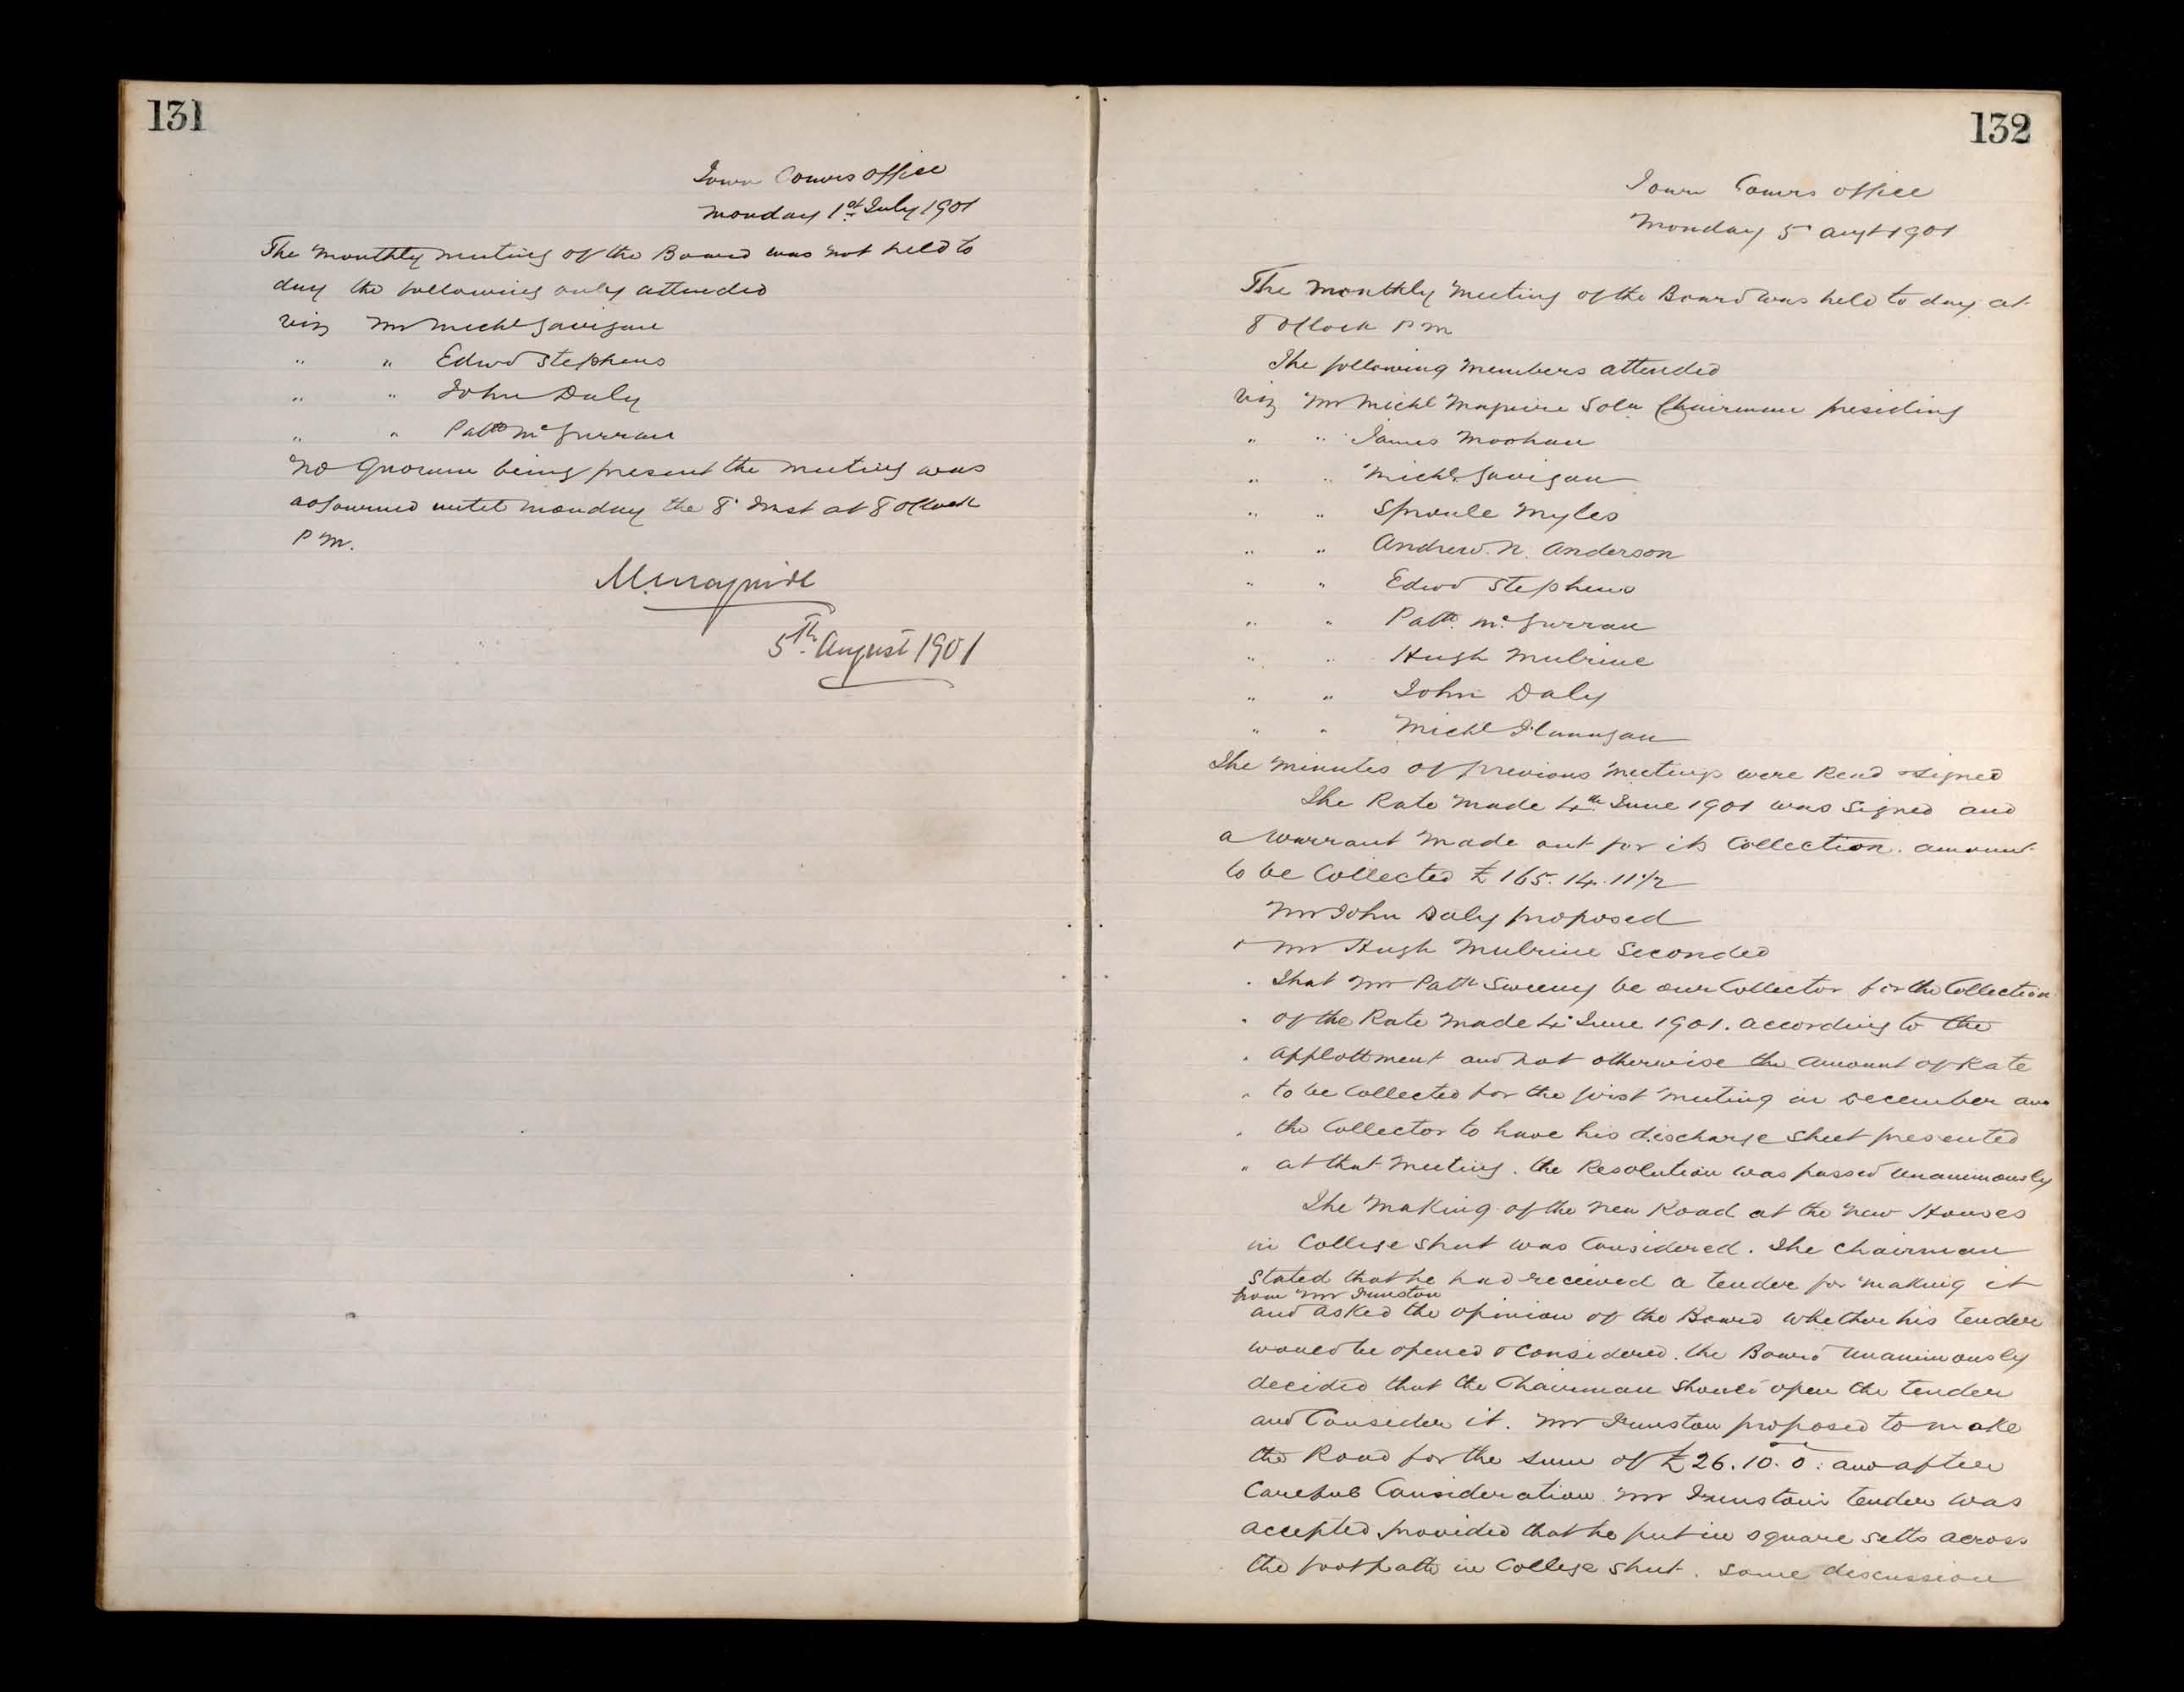 131
Town Comrs office
Monday 1st July 1901
The Monthly meeting of the Board was not held to
day the following only attended
viz Mr Michl Gavigan
" " Edwd Stephens
" " John Daly
" " Patk McGurran
No Quorum being present the meeting was
adjourned untill Monday the 8th Inst at 8 OClock
P M.
M. Maguire
5th August 1901
132
Town Comrs office
Monday 5 augt 1901
The Monthly Meeting of the Board was held to day at
8 OClock P M
The following Members attended
viz Mr Michl Maguire Solr Chairman presiding
" " James Moohan
" " Michl Gavigan
" " Sproule Myles
" " Andrew. N. Anderson
" " Edwd Stephens
" " Patk. McGurran
" " Hugh Mulrine
" " John Daly
" " Michl Flanagan
The Minutes of previous Meetings were Read & signed
The Rate Made 4th June 1901 was Signed and
a Warrant Made out for its Collection. amount
to be Collected £165.14.11½
Mr John Daly proposed
" Mr Hugh Mulrine Seconded
" That Mr Patk Sweeny be our Collector for the Collection
" of the Rate Made 4th June 1901. according to the
" applottment and not otherwise the amount of Rate
" to be Collected for the first Meeting in December and
" the Collector to have his discharge Sheet presented
" at that Meeting. the Resolution was passed Unanimously
The Making of the New Road at the New Houses
in College Street was Considered. The Chairman
Stated that he had received a tender for Making it
from Mr Funston
and asked the opinion of the Board whether his tender
would be opened & Considered. the Board Unanimously
decided that the Chairman Should open the tender
and Consider it. Mr Funston proposed to make
the Road for the Sum of £26.10.0: and after
Careful Consideration Mr Funston's tender was
accepted provided that he put in square setts across
the footpath in College Street. Some discussion